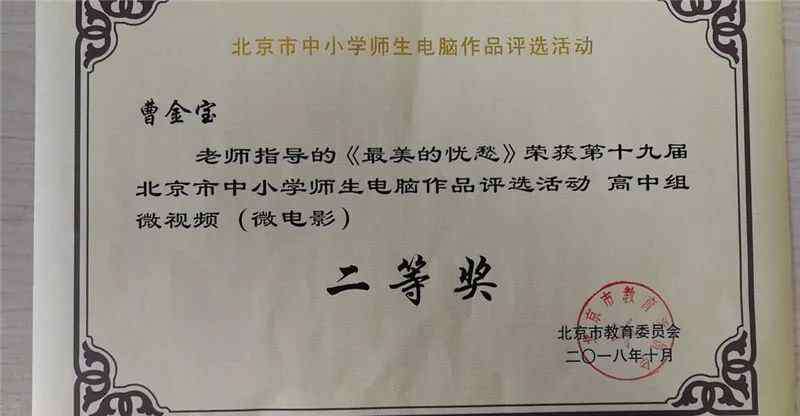 北京市中小学师生电脑作品评选活动
曹金宝
老师指导的《最美的忧愁》荣获第十九届
北京市中小学师生电脑作品评选活动 高中组
微视频（微电影）
二等奖
北京市教育委员会
二〇一八年十月